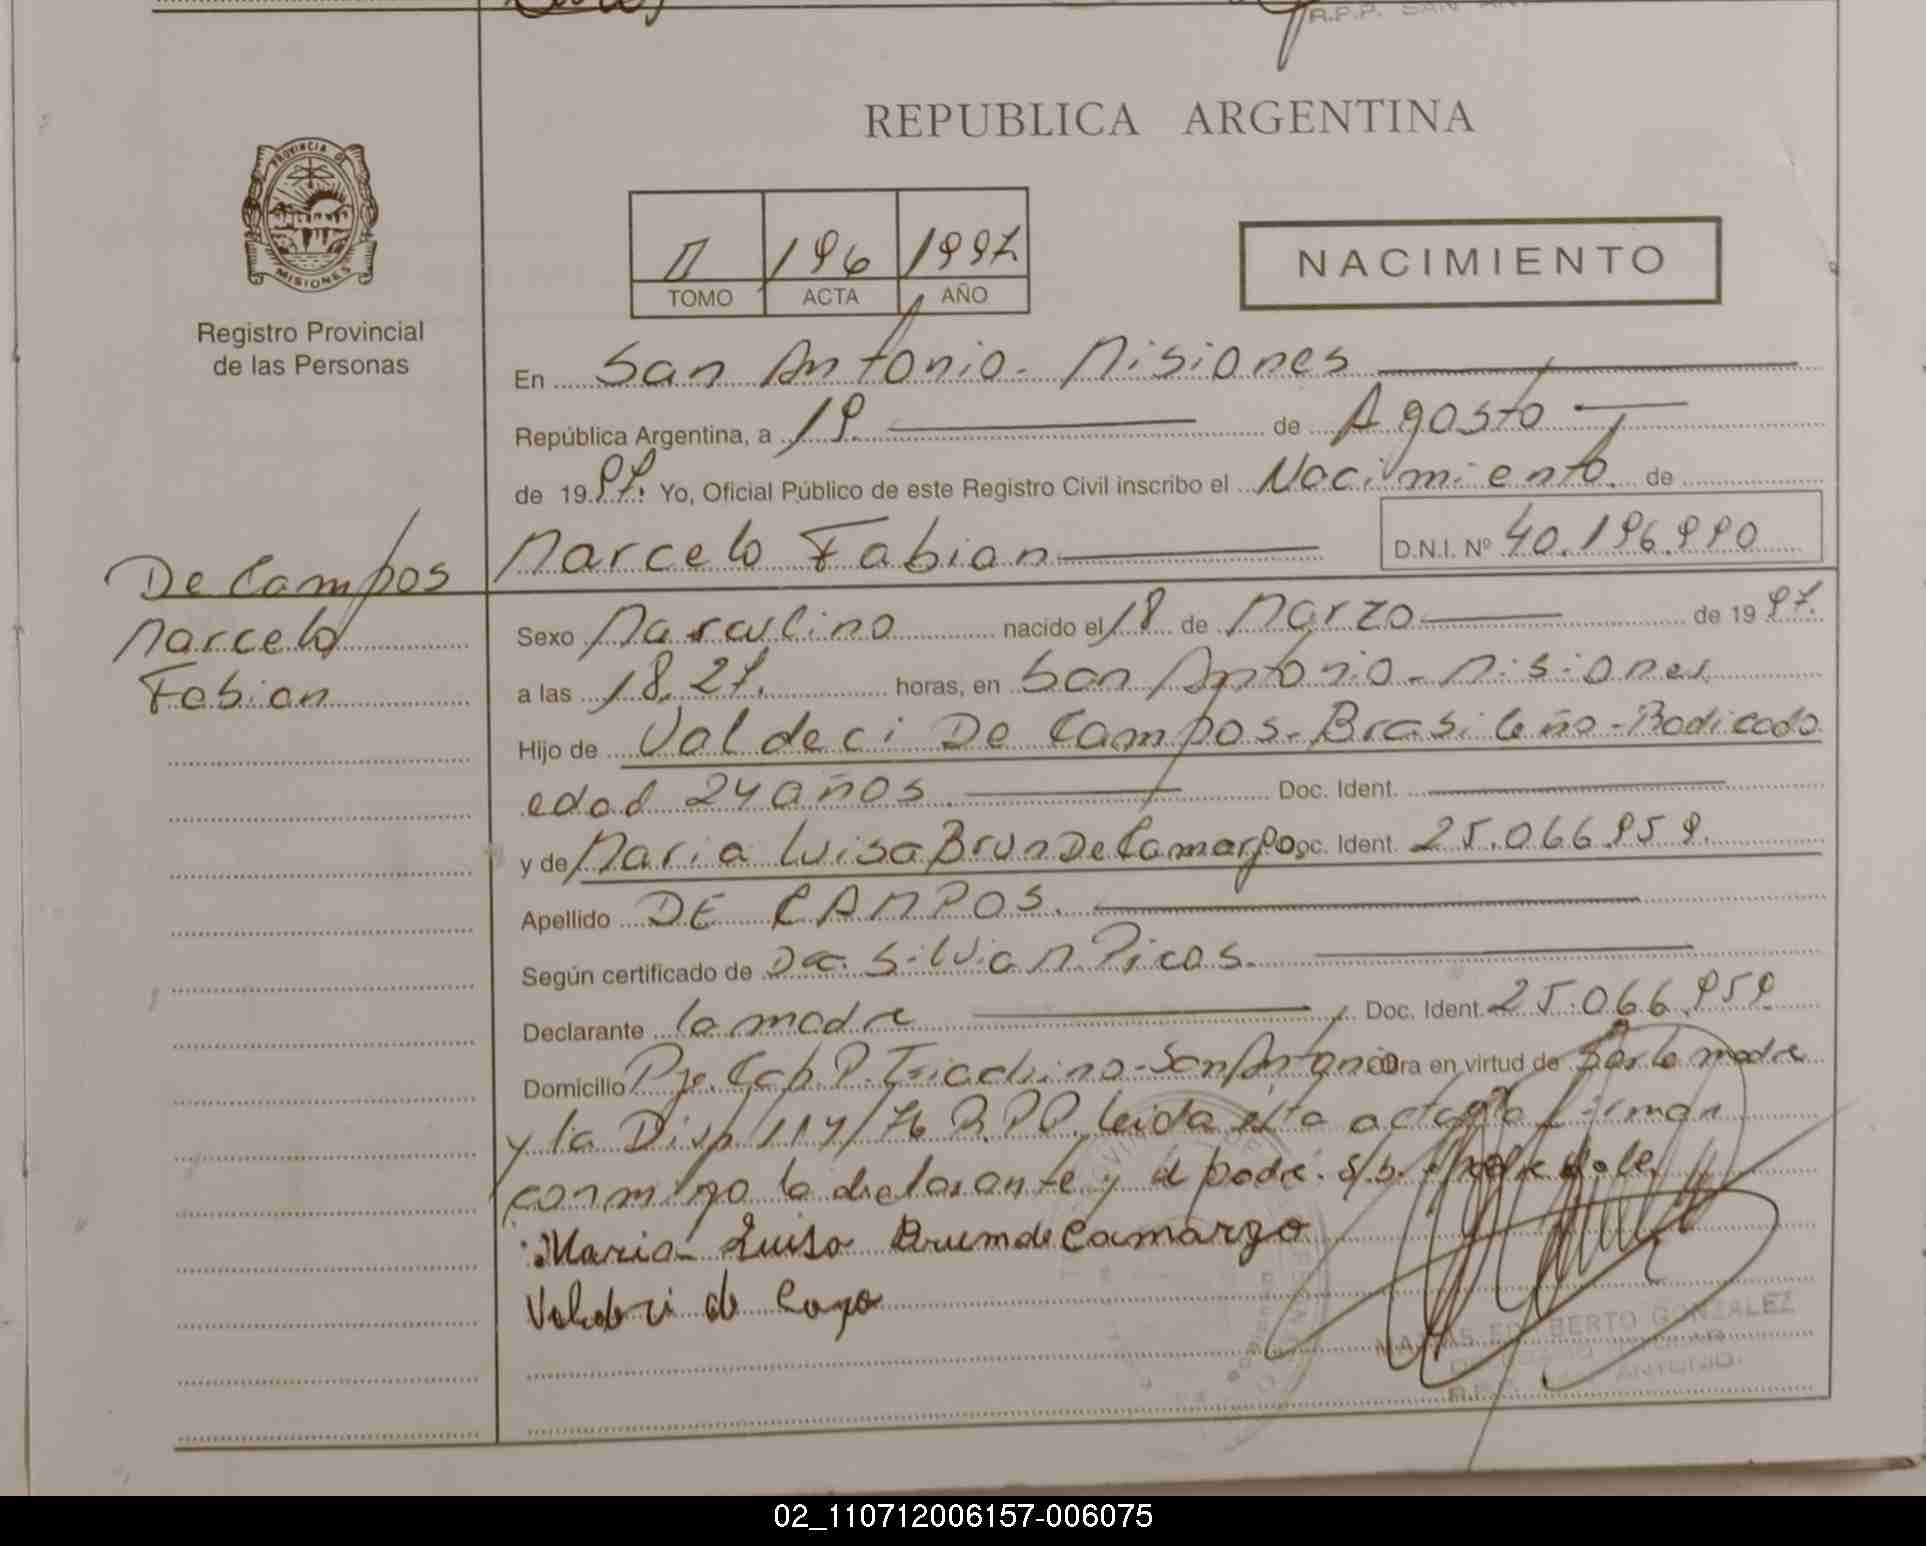 R.P.P. SAN
REPUBLICA ARGENTINA
PROVINCIA DE
MISIONES
II 196 1997
TOMO ACTA AÑO
NACIMIENTO
Registro Provincial
de las Personas
En San Antonio - Misiones
República Argentina, a 19 de Agosto
de 1997. Yo, Oficial Público de este Registro Civil inscribo el Nacimiento de
Marcelo Fabian D.N.I. Nº 40.196.990
De Campos
Marcelo
Fabian
Sexo Masculino nacido el 18 de Marzo de 1997.
a las 18.27. horas, en San Antonio - Misiones
Hijo de Valdeci De Campos - Brasileño - Radicado
edad 24 años. Doc. Ident.
y de Maria Luisa Brun De Camargo Doc. Ident. 25.066.959.
Apellido DE CAMPOS.
Según certificado de Doc. Silvia N. Picas.
Declarante la madre Doc. Ident. 25.066.959
Domicilio Pje. Cab. P. San Antonio Obra en virtud de Ser la madre
y la Disp 114/76 R.P.P. leida esta acta la firman
conmigo la declarante y el padre. S/b. padre Vale
Maria Luisa Brum de Camargo
Valdeci de
MATIAS EDILBERTO GONZALEZ
R.P.P. ANTONIO
02_110712006157-006075